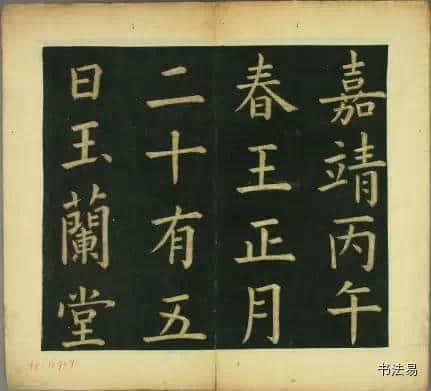 嘉靖丙午
春王正月
二十有五
日玉蘭堂
书法易